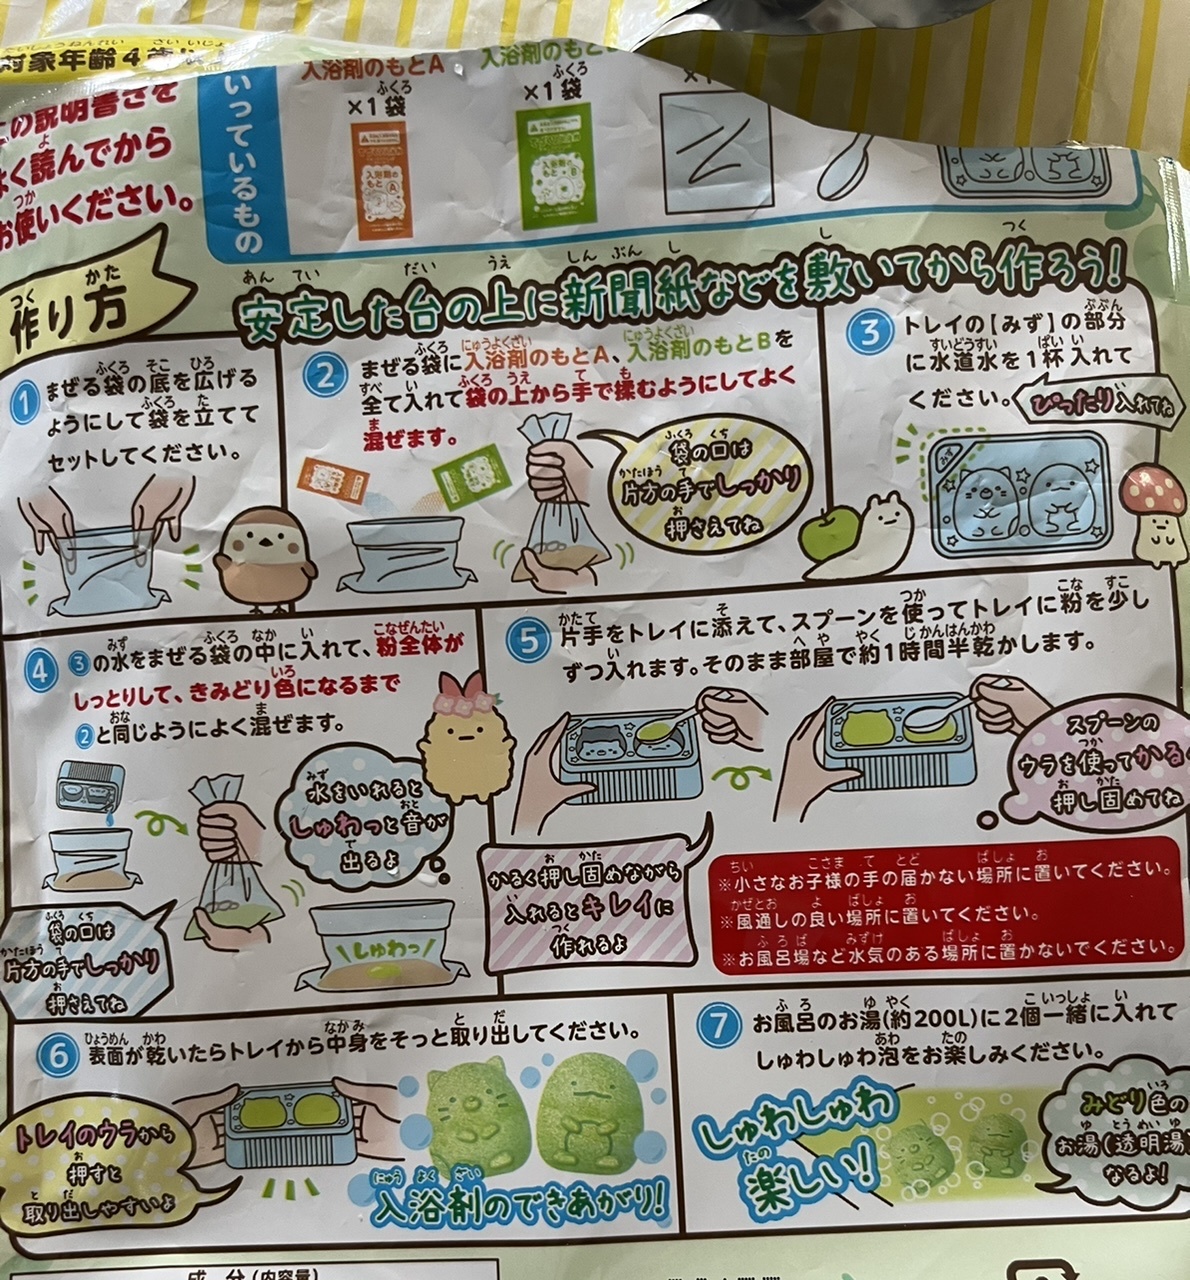 対象年齢4歳以
この説明書きを
よく読んでから
お使いください。
いっているもの
入浴剤のもとA
×1袋
入浴剤のもとB
×1袋
×1
入浴剤の
もと A
入浴剤の
もと B
作り方
安定した台の上に新聞紙などを敷いてから作ろう!
1
まぜる袋の底を広げる
ようにして袋を立てて
セットしてください。
2
まぜる袋に入浴剤のもとA、入浴剤のもとBを
全て入れて袋の上から手で揉むようにしてよく
混ぜます。
袋の口は
片方の手でしっかり
押さえてね
3
トレイの【みず】の部分
に水道水を1杯入れて
ください。
ぴったり入れてね
みず
4
③の水をまぜる袋の中に入れて、粉全体が
しっとりして、きみどり色になるまで
②と同じようによく混ぜます。
水をいれると
しゅわっと音が
出るよ
袋の口は
片方の手でしっかり
押さえてね
しゅわっ
5
片手をトレイに添えて、スプーンを使ってトレイに粉を少し
ずつ入れます。そのまま部屋で約1時間半乾かします。
スプーンの
ウラを使ってかる
押し固めてね
かるく押し固めながら
入れるとキレイに
作れるよ
※小さなお子様の手の届かない場所に置いてください。
※風通しの良い場所に置いてください。
※お風呂場など水気のある場所に置かないでください。
6
表面が乾いたらトレイから中身をそっと取り出してください。
トレイのウラから
押すと
取り出しやすいよ
入浴剤のできあがり!
7
お風呂のお湯(約200L)に2個一緒に入れて
しゅわしゅわ泡をお楽しみください。
しゅわしゅわ
楽しい!
みどり色の
お湯(透明湯)
なるよ!
成 分(内容量)